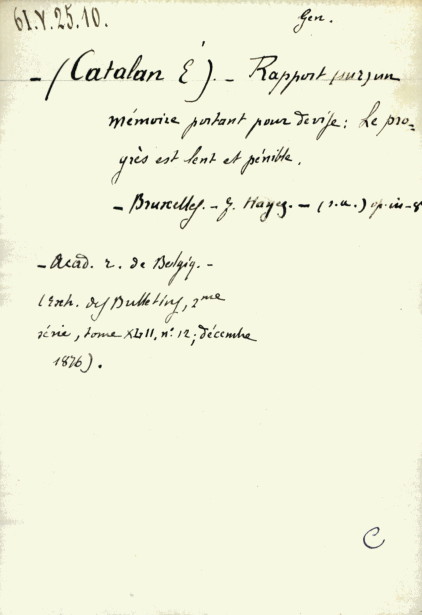 61.V.25.10.
Gen.
- (Catalan É). - Rapport (sur) un
mémoire portant pour devise: Le pro=
grès est lent et pénible.
- Bruxelles. - F. Hayez. - (s.a.) op. in-8
- Acad. r. de Belgiq. -
(Extr. des Bulletins, 2me
série, tome XLII, n.º 12; décembre
1876).
C